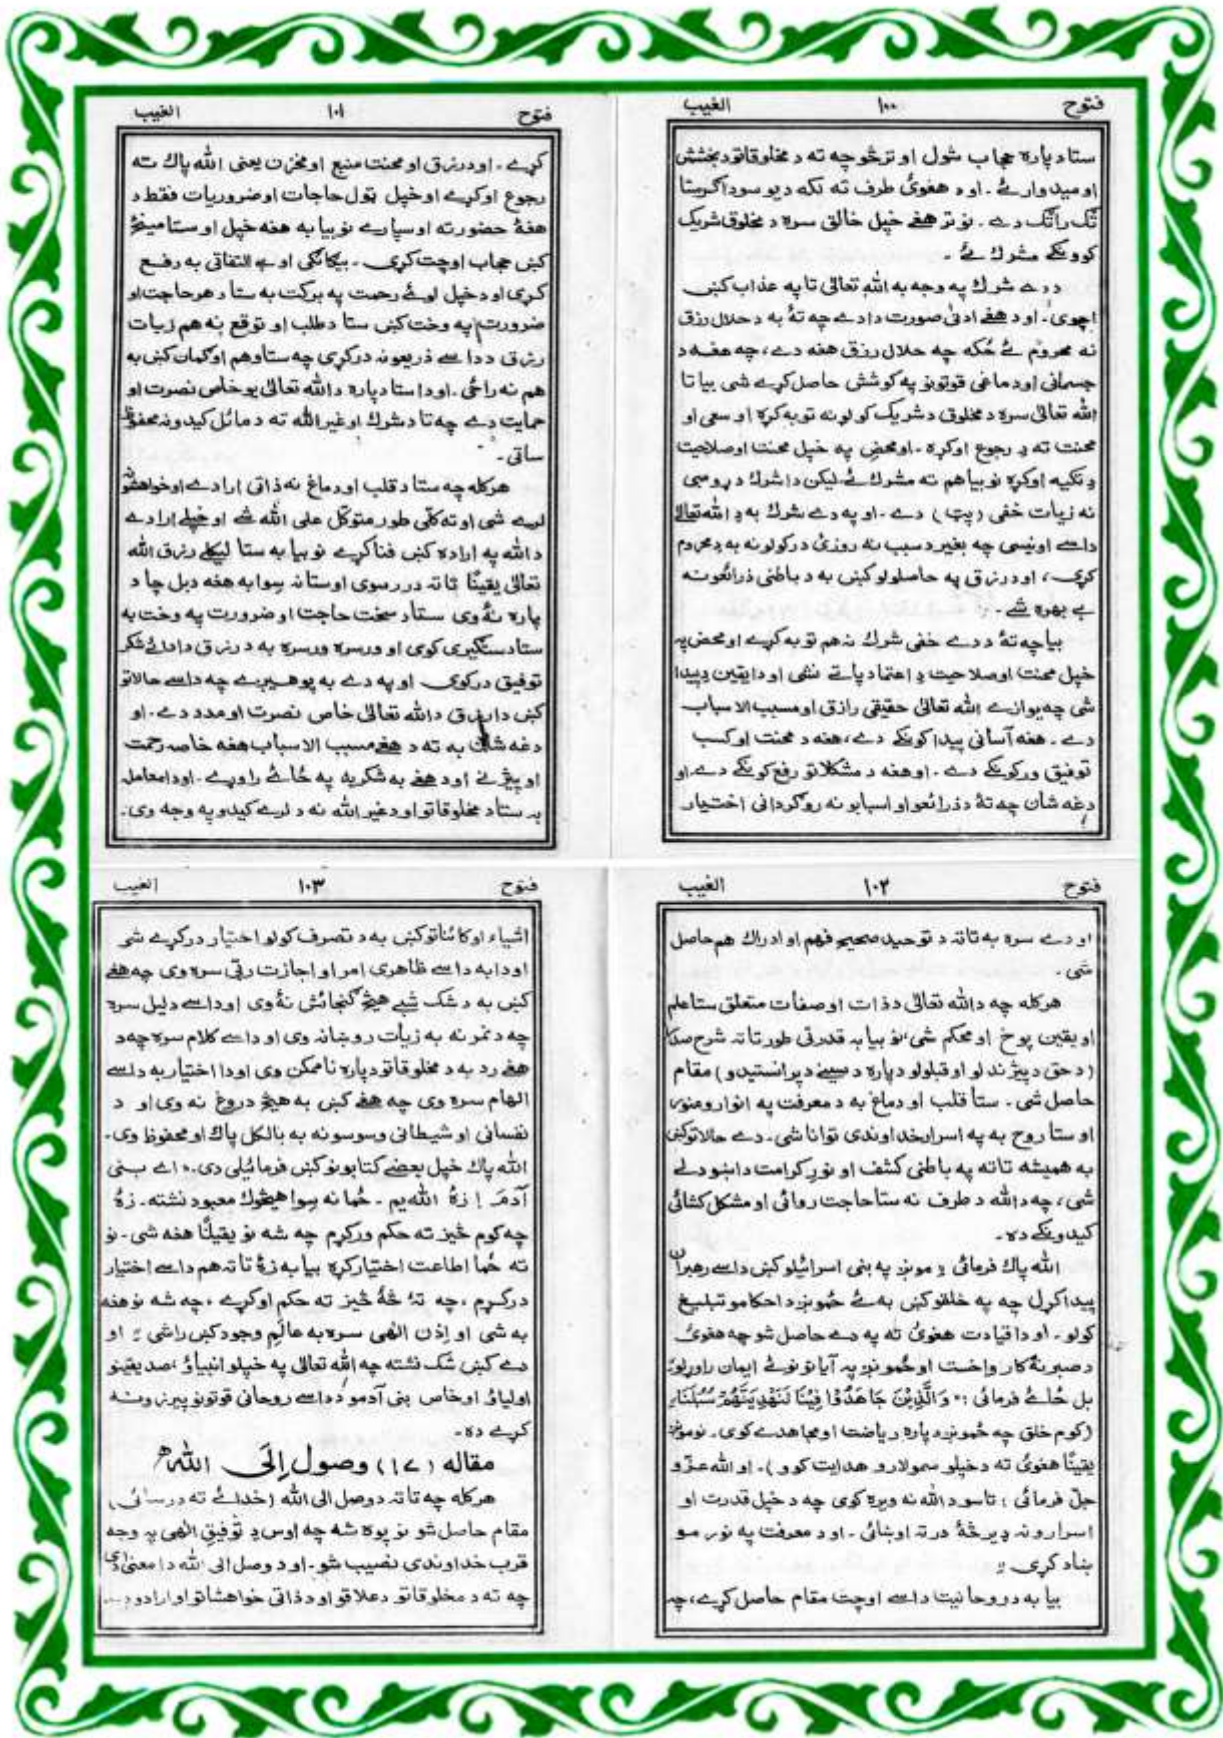 فتوح ١٠٠ الغيب
ستا دپاره حجاب شول او ترڅو چه ته د مخلوقاتو د بخشش
اوميدوار ئے ۔ او د هغوئ طرف ته تګه د يو سوداګر ستا
تګ راتګ دے ۔ نو تر هغے خپل خالق سره د مخلوق شريک
کوونکے مشرک ئے ۔
د دے شرک په وجه به الله تعالیٰ تا په عذاب کښے
اچوی ۔ او د هغے ادنیٰ صورت دا دے چه تۀ به د حلال رزق
نه محروم ئے ځکه چه حلال رزق هغه دے، چه هغه د
جسمانی او دماغی قوتونو په کوشش حاصل کړے شی بيا تا
الله تعالیٰ سره د مخلوق د شريک کولو نه توبه کړه او سعی او
محنت ته دِ رجوع اوکړه ۔ او محض په خپل محنت او صلاحيت
دِ تکيه اوکړه نو بيا هم ته مشرک ئے ليکن دا شرک د ړومبی
نه زيات خفی (پټ) دے ۔ او په دے شرک به دِ الله تعالیٰ
داسے اونيسی چه بغير د سبب نه روزئ درکولو نه به دِ محروم
کړی، او د رزق په حاصلولو کښے به د باطنی ذرائعو نه
بے بهره شے ۔
بيا چه تۀ د دے خفی شرک نه هم توبه کړے او محض په
خپل محنت او صلاحيت دِ اعتماد پاتے نشی او دا يقين دِ پيدا
شی چه يوازے الله تعالیٰ حقيقی رازق او مسبب الاسباب
دے ۔ هغه آسانی پيدا کوونکے دے، هغه د محنت او کسب
توفيق ورکوونکے دے ۔ او هغه د مشکلاتو رفع کوونکے دے ۔ او
دغه شان چه تۀ د ذرائعو او اسبابو نه روګردانی اختيار
فتوح ١٠١ الغيب
کړے ۔ او د رزق او محنت منبع او مخزن يعنی الله پاک ته
رجوع اوکړے او خپل ټول حاجات او ضروريات فقط د
هغۀ حضور ته اوسپارے نو بيا به هغه خپل او ستا مينځ
کښے حجاب اوچت کړی ۔ بيګانګی او بے التفاتی به رفع
کړی او د خپل لوئے رحمت په برکت به ستا د هر حاجت او
ضرورت په وخت کښے ستا د طلب او توقع نه هم زيات
رزق د داسے ذريعو نه درکړی چه ستا وهم او ګمان کښے به
هم نه راځی ۔ او دا ستا دپاره د الله تعالیٰ يو خاص نصرت او
حمايت دے چه تا د شرک او غير الله ته د مائل کيدو نه محفوظ
ساتی ۔
هر کله چه ستا د قلب او دماغ نه ذاتی ارادے او خواهشونه
لرے شی او ته کلی طور متوکل علی الله شے او خپلے ارادے
د الله په اراده کښے فنا کړے نو بيا به ستا ليکلے رزق الله
تعالیٰ يقينًا تا ته در رسوی او ستا نه سِوا به هغه د بل چا د
پاره نۀ وی ستا د سخت حاجت او ضرورت په وخت به
ستا دستګيری کوی او ورسره ورسره به د رزق د ادائے شکر
توفيق درکوی ۔ او په دے به پوهيږے چه داسے حالاتو
کښے دا رزق د الله تعالیٰ خاص نصرت او مدد دے ۔ او
دغه شان به ته د هغے مسبب الاسباب هغه خاصه رحمت
اوپيژنے او د هغے به شکريه په ځائے راوړے ۔ او دا معامله
به ستا د مخلوقاتو او د غير الله نه د لرے کيدو په وجه وی ۔
فتوح ١٠٢ الغيب
او دے سره به تا ته د توحيد صحيح فهم او ادراک هم حاصل
شی ۔
هر کله چه د الله تعالیٰ د ذات او صفات متعلق ستا علم
او يقين پوخ او محکم شی نو بيا به قدرتی طور تا ته شرح صدر
(د حق د پيژندلو او قبلولو دپاره د سينے د پرانستيدو) مقام
حاصل شی ۔ ستا قلب او دماغ به د معرفت په انوارو منور
او ستا روح به په اسرار خداوندی توانا شی ۔ دے حالاتو کښے
به هميشه تا ته په باطنی کشف او نورِ کرامت دا ښودلے
شی، چه د الله د طرف نه ستا حاجت روائی او مشکل کشائی
کيدونکے ده ۔
الله پاک فرمائی "مونږ په بنی اسرائيلو کښے داسے رهبران
پيدا کړل چه په خلقو کښے به ئے ځمونږ د احکامو تبليغ
کولو ۔ او دا قيادت هغوئ ته په دے حاصل شو چه هغوئ
د صبر نه کار واخست او ځمونږ په آياتونو ئے ايمان راوړلو"
بل ځائے فرمائی :۔ "وَالَّذِيْنَ جَاهَدُوْا فِيْنَا لَنَهْدِيَنَّهُمْ سُبُلَنَا"
(کوم خلق چه ځمونږ دپاره رياضت او مجاهدے کوی ۔ نو مونږ
يقينًا هغوئ ته د خپلو سمو لارو هدايت کوو) ۔ او الله عزّ و
جلّ فرمائی: تاسو د الله نه ويره کوی چه د خپل قدرت او
اسرارو نه ډير څۀ درته اوښائی ۔ او د معرفت په نور مو
ښاد کړی "
بيا به د روحانيت داسے اوچت مقام حاصل کړے، چه
فتوح ١٠٣ الغيب
اشياء او کائناتو کښے به د تصرف کولو اختيار درکړے شی
او دا به داسے ظاهری امر او اجازت ربّی سره وی چه هغے
کښے به د شک شبے هيڅ ګنجائش نۀ وی او داسے دليل سره
چه د نمر نه به زيات روښانه وی او داسے کلام سره چه د
هغے رد به د مخلوقاتو دپاره ناممکن وی او دا اختيار به داسے
الهام سره وی چه هغے کښے به هيڅ دروغ نه وی او د
نفسانی او شيطانی وسوسو نه به بالکل پاک او محفوظ وی ۔
الله پاک خپل بعضے کتابونو کښے فرمائيلی دی ۔ "اے بنی
آدم ! زۀ الله يم ۔ ځما نه سِوا هيڅوک معبود نشته ۔ زۀ
چه کوم څيز ته حکم ورکړم چه شه نو يقينًا هغه شی ۔ نو
ته ځما اطاعت اختيار کړه بيا به زۀ تا ته هم داسے اختيار
درکړم، چه تۀ څۀ څيز ته حکم اوکړے، چه شه نو هغه
به شی او اِذن الٰهی سره به عالَم وجود کښے راشی" او
دے کښے شک نشته چه الله تعالیٰ په خپلو انبياؤ، صديقينو
اولياؤ او خاص بنی آدمو د داسے روحانی قوتونو پيرزوئنه
کړے ده ۔
مقاله (١٧) وصول اِلَی الله
هر کله چه تا ته د وصل الی الله (خدائے ته د رسائی)
مقام حاصل شو نو پوه شه چه اوس دِ توفيق الٰهی په وجه
قرب خداوندی نصيب شو ۔ او د وصل الی الله دا معنیٰ ده
چه ته د مخلوقاتو د علاقو او د ذاتی خواهشاتو او ارادو